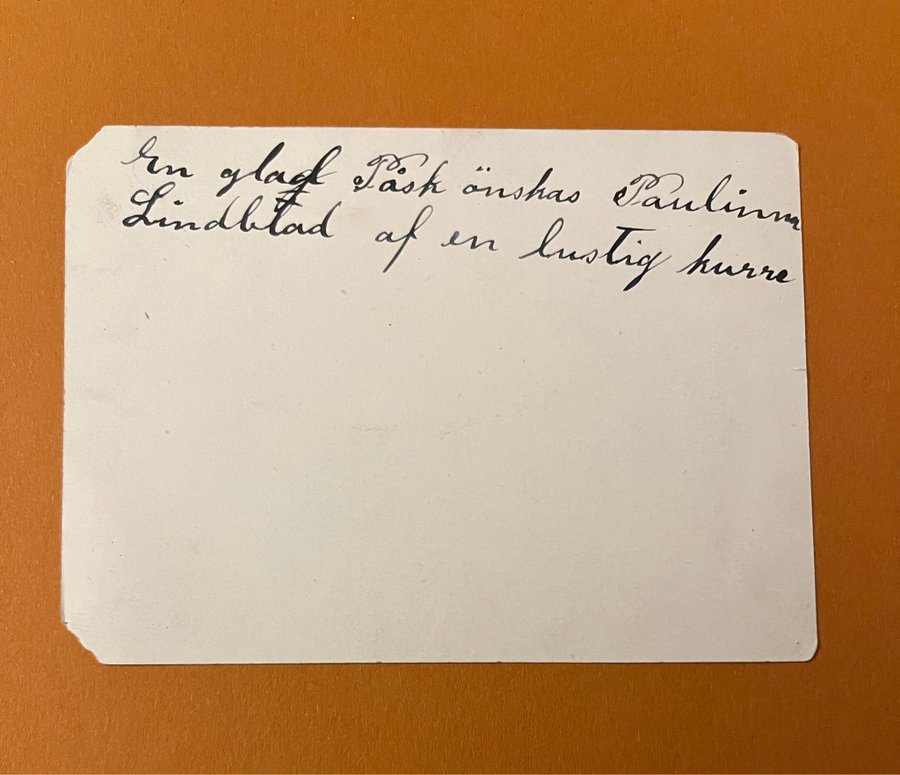 En glad Påsk önskas Paulinna
Lindblad af en lustig kurre